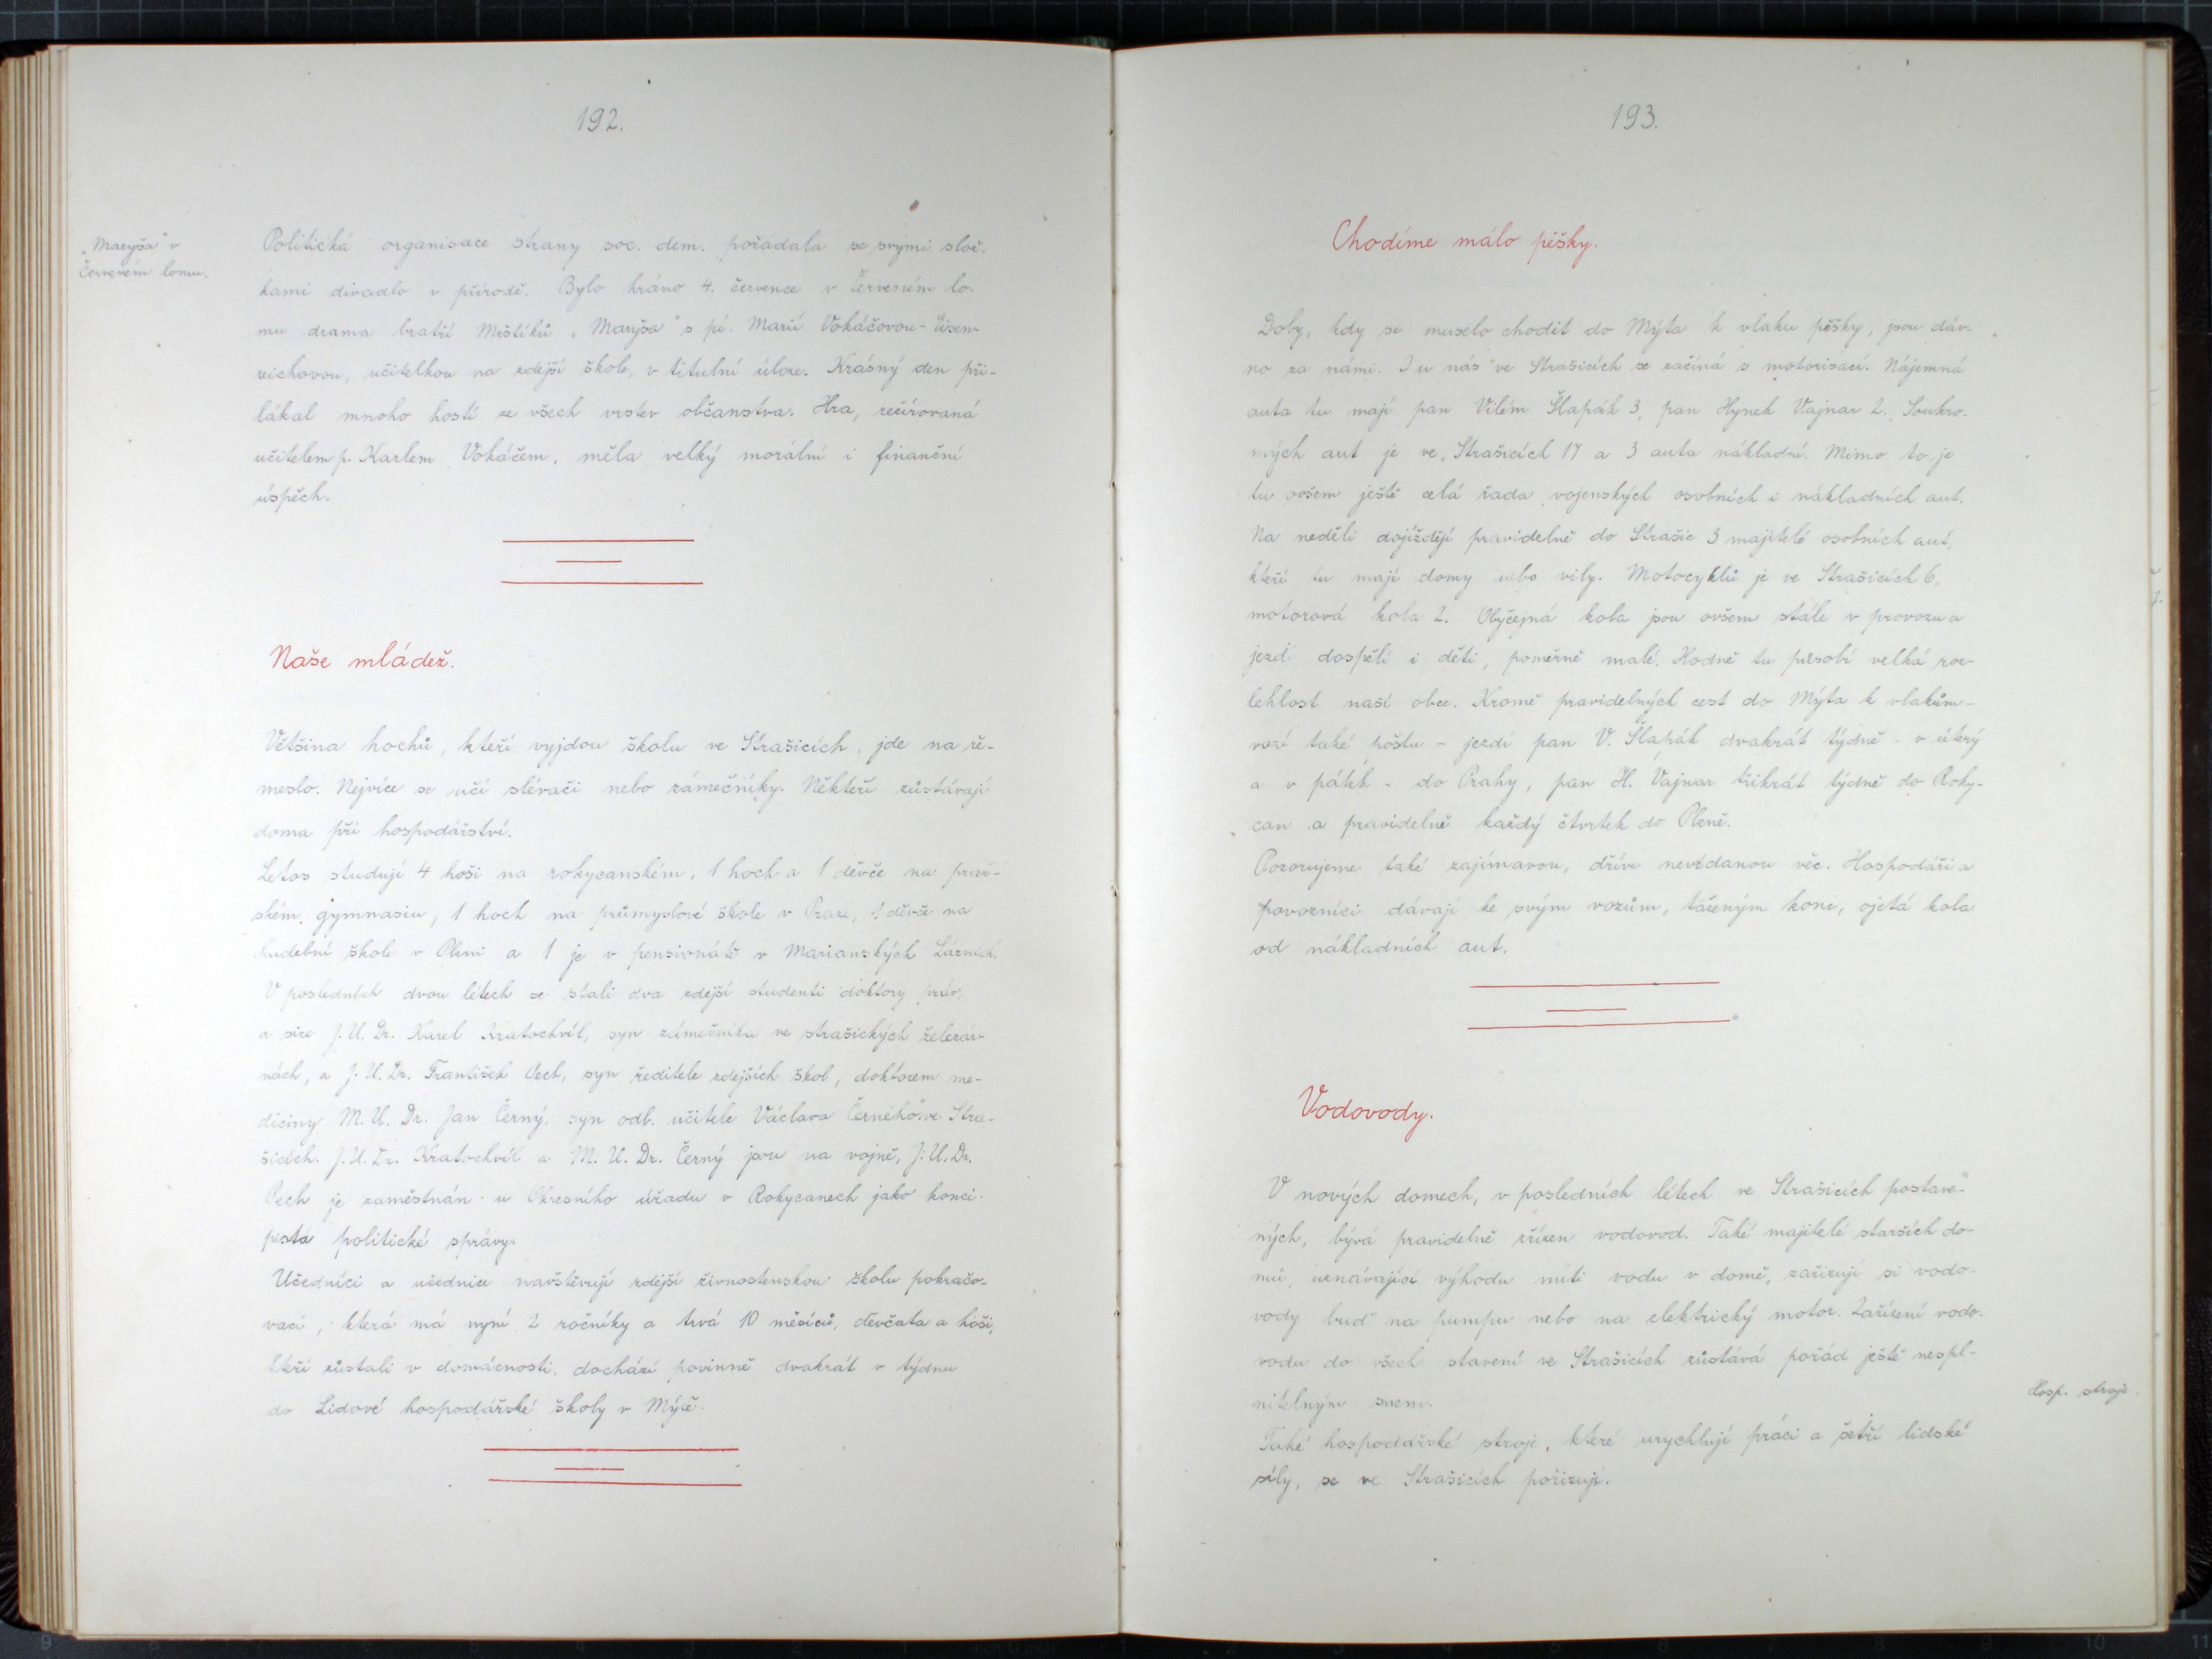 192.
„Maryša" v
Červeném lomu.
Politická organisace strany soc. dem. pořádala se svými slož-
kami divadlo v přírodě. Bylo hráno 4. července v Červeném lo-
mu drama bratří Mrštíků „Maryša" s pí. Marií Vokáčovou-Eisen-
reichovou, učitelkou na zdejší škole, v titulní úloze. Krásný den při-
lákal mnoho hostí ze všech vrstev občanstva. Hra, režírovaná
učitelem p. Karlem Vokáčem, měla velký morální i finanční
úspěch.
Naše mládež.
Většina hochů, kteří vyjdou školu ve Strašicích, jde na ře-
meslo. Nejvíce se učí slévači nebo zámečníky. Někteří zůstávají
doma při hospodářství.
Letos studují 4 hoši na rokycanském, 1 hoch a 1 děvče na praž-
ském gymnasiu, 1 hoch na průmyslové škole v Praze, 1 děvče na
hudební škole v Plzni a 1 je v pensionátě v Marianských Lázních.
V posledních dvou létech se stali dva zdejší studenti doktory práv,
a sice J. U. Dr. Karel Kratochvíl, syn zámečníka ve strašických železár-
nách, a J. U. Dr. František Pech, syn ředitele zdejších škol, doktorem me-
diciny M. U. Dr. Jan Černý, syn odb. učitele Václava Černého ve Stra-
šicích. J. U. Dr. Kratochvíl a M. U. Dr. Černý jsou na vojně, J. U. Dr.
Pech je zaměstnán u Okresního úřadu v Rokycanech jako konci-
pista politické správy.
Učedníci a učednice navštěvují zdejší živnostenskou školu pokračo-
vací, která má nyní 2 ročníky a trvá 10 měsíců, děvčata a hoši,
kteří zůstali v domácnosti, dochází povinně dvakrát v týdnu
do Lidové hospodářské školy v Mýtě.
193.
Chodíme málo pěšky.
Doby, kdy se muselo chodit do Mýta k vlaku pěšky, jsou dáv-
no za námi. I u nás ve Strašicích se začíná s motorisací. Nájemná
auta tu mají pan Vilém Šlapák 3, pan Hynek Vajnar 2. Soukro-
mých aut je ve Strašicích 17 a 3 auta nákladní. Mimo to je
tu ovšem ještě celá řada vojenských osobních i nákladních aut.
Na neděli dojíždějí pravidelně do Strašic 3 majitelé osobních aut,
kteří tu mají domy nebo vily. Motocyklů je ve Strašicích 6,
motorová kola 2. Obyčejná kola jsou ovšem stále v provozu a
jezdí dospělí i děti, poměrně malé. Hodně tu působí velká roz-
lehlost naší obce. Kromě pravidelných cest do Mýta k vlakům -
vozí také poštu - jezdí pan V. Šlapák dvakrát týdně - v úterý
a v pátek - do Prahy, pan H. Vajnar třikrát týdně do Roky-
can a pravidelně každý čtvrtek do Plzně.
Pozorujeme také zajímavou, dříve nevídanou věc. Hospodáři a
povozníci dávají ke svým vozům, taženým koni, ojetá kola
od nákladních aut.
Vodovody.
V nových domech, v posledních létech ve Strašicích postave-
ných, bývá pravidelně zřízen vodovod. Také majitelé starších do-
mů, uznávající výhodu míti vodu v domě, zařizují si vodo-
vody buď na pumpu nebo na elektrický motor. Zařízení vodo-
vodu do všech stavení ve Strašicích zůstává pořád ještě nespl-
nitelným snem.
Hosp. stroje.
Také hospodářské stroje, které urychlují práci a šetří lidské
síly, se ve Strašicích pořizují.